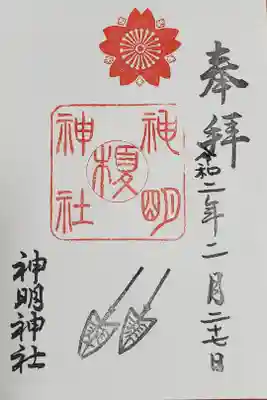 奉拝
令和二年二月二十七日
神明
榎
神社
神明神社